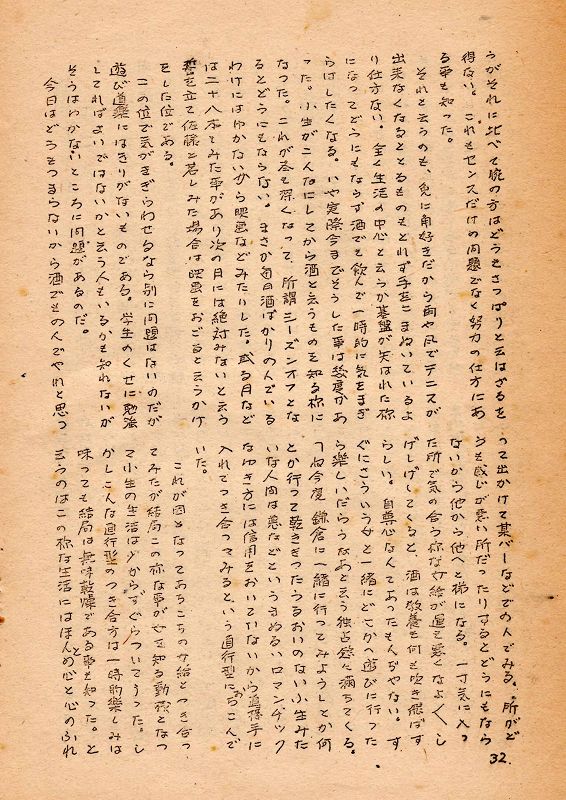 うがそれに比べて腕の方はどうもさっぱりと云はざるを
得ない。これもセンスだけの問題でなく努力の仕方にあ
る事も知った。
それと云うのも、兎に角好きだから雨や風でテニスが
出来なくなるととるものもとれず手をこまぬいているよ
り仕方ない。全く生活の中心と云うか基盤が失はれた様
になってどうにもならず酒でも飲んで一時的に気をまぎ
らはしたくなる。いや実際今までそうした事は幾度かあ
った。小生がこんなにしてから酒と云うものを知る様に
なった。これが尽き深くなって、所謂シーズンオフとな
るとどうにもならない。まさか毎日酒ばかりのんでいる
わけにはゆかないから映画などみたいした。或る月など
は二十八本でみた事があり次の月には絶対みないと云う
誓を立て佐藤と君しみた場合は映画をおごると云うかけ
をした位である。
この位で気がまぎらわせるなら別に問題はないのだが
遊び道楽にはきりがないものである。学生のくせに勉強
してればよいではないかと云う人もいるかも知れないが
そうはゆかないところに問題があるのだ。
今日はどうもつまらないから酒でものんでやれと思っ
うて出かけて某バーなどでのんでみる。所がど
うも感じが悪い所だったりするとどうにもなら
ないから他から他へと梯になる。一寸気に入っ
た所で気の合う様な女給が運も悪くなよくし
げしげしてくると、酒は教養も何も吹き飛ばす
らしい。自尊心なんてあったもんぢやない。す
ぐにこういう女と一緒にどこかへ遊びに行った
ら楽しいだらうなあと云う独占感に満ちてくる。
「ね今度、鎌倉に一緒に行ってみようしとか何
とか行って乾ききったうるおいのない小生みた
いな人間は恵などというきめるいロマンチック
なゆき方には信用をおいていないから直接手に
入れてつき合ってみるという直行型におちこんで
いた。
これが因となってあちこちの女給とつき合っ
てみたが結局この様な事が女を知る動機となっ
て小生の生活は少からずぐらついてしまった。し
かしこんな直行型のつき合方は一時的楽しみは
味っても結局は無味乾燥である事も知った。と
云うのはこの様な生活にはほんとの心と心のふれ
32.